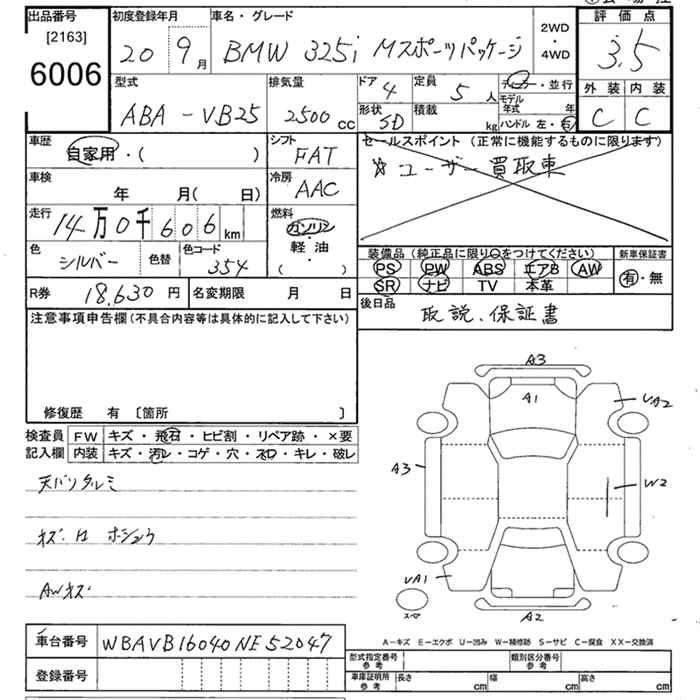 出品番号 初度登録年月 車名・グレード 評価点
[2163]
6006
20 9月 BMW 325i Mスポーツパッケージ 2WD 4WD 3.5
型式 排気量 ドア 定員 ディーラー・並行 外装 内装
ABA-VB25 2500cc 4 5人 モデル年式 年 C C
形状 積載 ハンドル 左・右
SD kg
車歴 シフト セールスポイント (正常に機能するものに限ります)
自家用・( ) FAT ☆ユーザー買取車
車検 冷房
年 月( 日) AAC
走行 燃料
14万0千606km ガソリン
軽・油
( )
色 色替 色コード
シルバー 354
装備品 (純正品に限り○をつけてください) 新車保証書
PS PW ABS エアB AW 有・無
SR ナビ TV 本革
R券 18,630円 名変期限 月 日 後日品
取説、保証書
注意事項申告欄(不具合内容等は具体的に記入して下さい)
修復歴 有 〔箇所 〕
検査員 FW キズ・飛石・ヒビ割・リペア跡・×要
記入欄 内装 キズ・汚レ・コゲ・穴・スレ・キレ・破レ
天バリタルミ
キズ・凹 ホシュウ
AWキズ
A3
A1
UA2
A3
W2
UA1
A2
スペア
A-キズ E-エクボ U-凹み W-補修跡 S-サビ C-腐食 XX-交換済
車台番号 WBAVB16040NE52047
登録番号
型式指定番号 参考 類別区分番号 参考
車庫証明用 参考 長さ cm 幅 cm 高さ cm